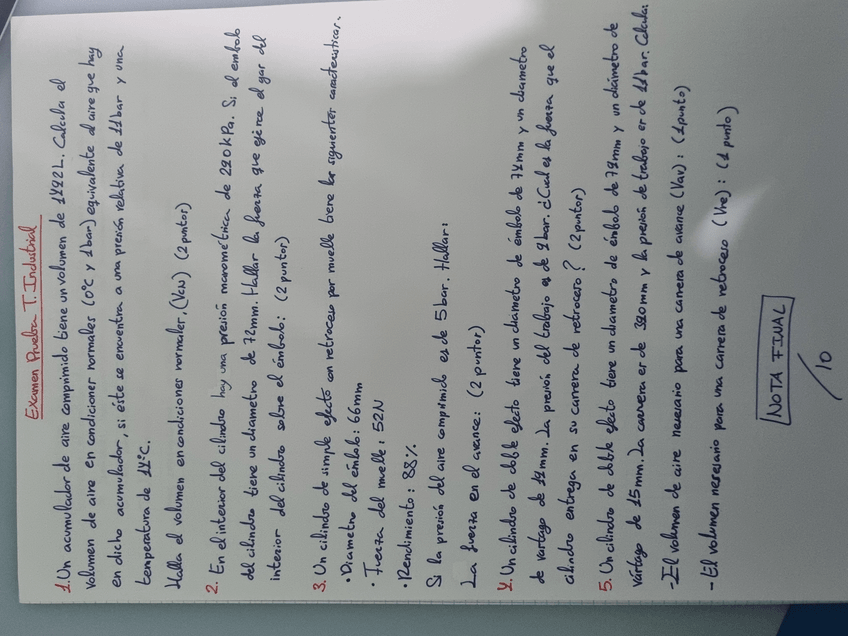 Examen Prueba T. Industrial
1. Un acumulador de aire comprimido tiene un volumen de 1492 L. Calcula el
volumen de aire en condiciones normales (0°C y 1bar) equivalente al aire que hay
en dicho acumulador, si éste se encuentra a una presión relativa de 11bar y una
temperatura de 14°C.
Halla el volumen en condiciones normales, (VCN) (2 puntos)
2. En el interior del cilindro hay una presión manométrica de 290 kPa. Si el embolo
del cilindro tiene un diametro de 72mm. Hallar la fuerza que ejerce el gas del
interior del cilindro sobre el émbolo: (2 puntos)
3. Un cilindro de simple efecto con retroceso por muelle tiene las siguientes caracteristicas.
• Diametro del émbolo: 66mm
• Fuerza del muelle: 52N
• Rendimiento: 88%
Si la presión del aire comprimido es de 5 bar. Hallar:
La fuerza en el avance: (2 puntos)
4. Un cilindro de doble efecto tiene un diametro de émbolo de 74mm y un diametro
de vastago de 14mm. La presión del trabajo es de 9bar. ¿Cual es la fuerza que el
cilindro entrega en su carrera de retroceso? (2 puntos)
5. Un cilindro de doble efecto tiene un diametro de émbolo de 79mm y un diámetro de
vástago de 15mm. La carrera es de 320mm y la presión de trabajo es de 11bar. Calcula:
- El volumen de aire necesario para una carrera de avance (Vav): (1punto)
- El volumen necesario para una carrera de retroceso (Vre): (1 punto)
NOTA FINAL
/10